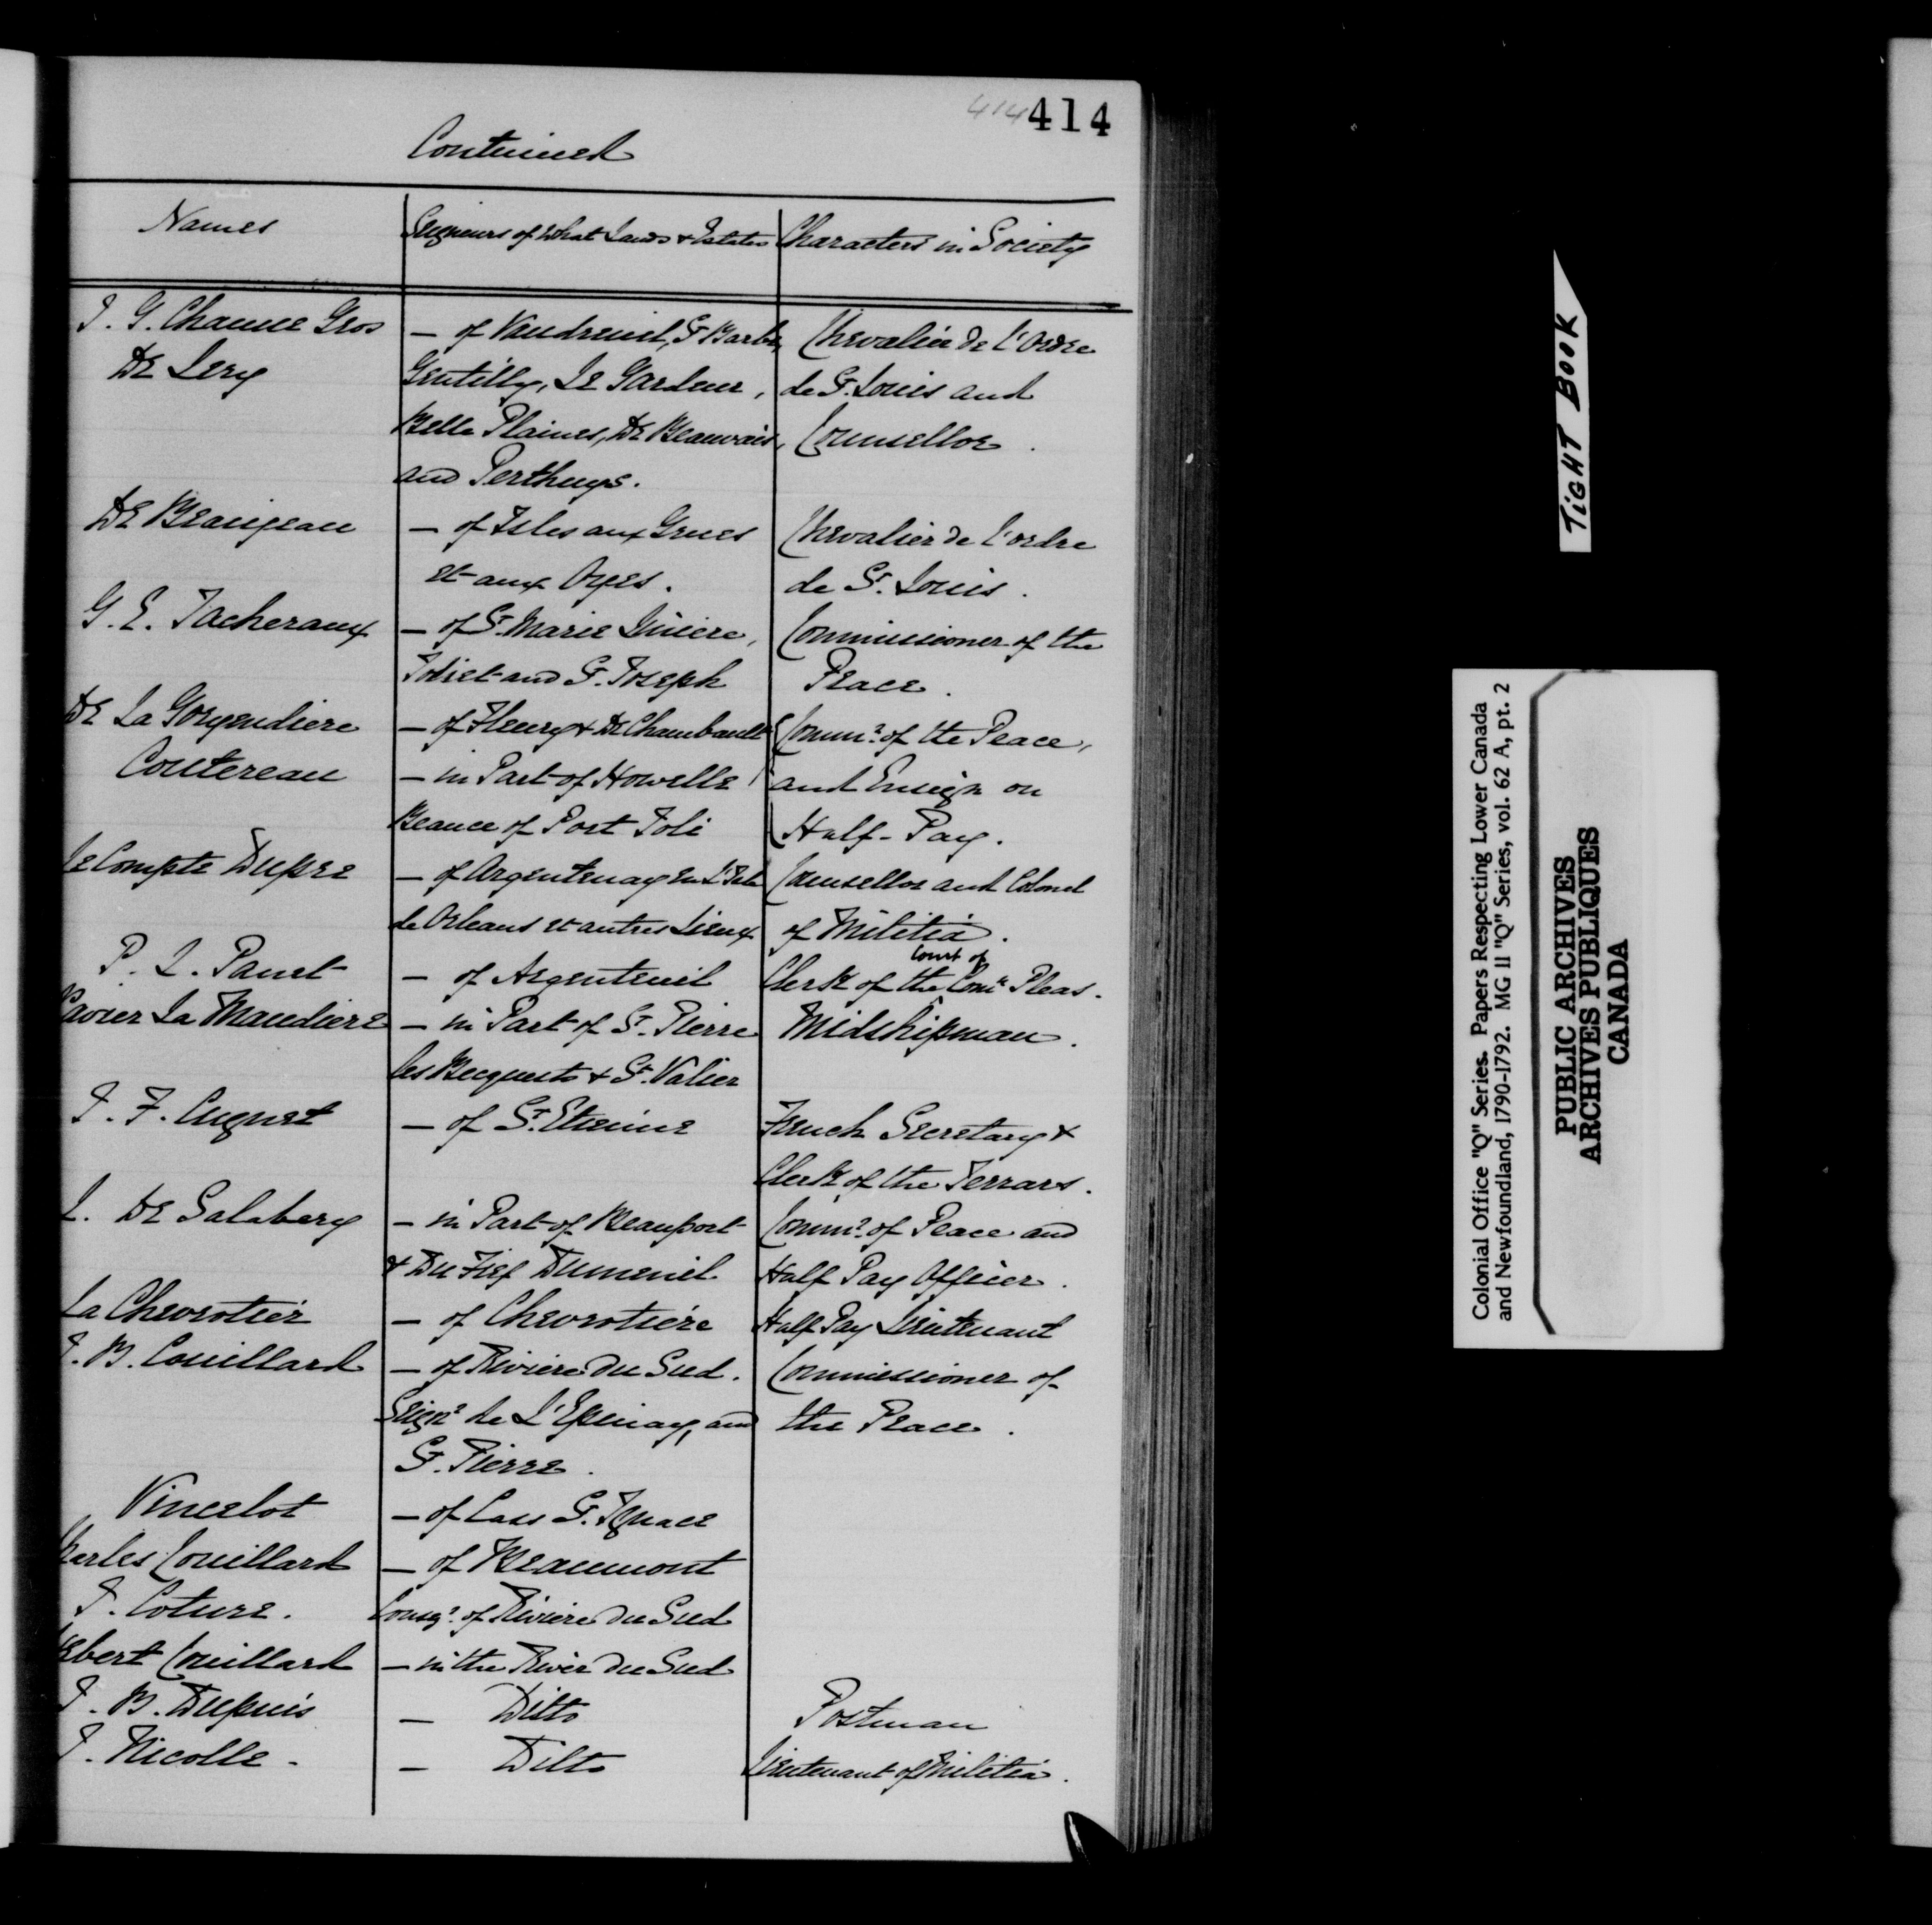 414 414
Continued
Names | Seigneurs of what Lands & Estates | Characters in Society
J. G. Chausse Gros | — of Vaudreuil, St. Barbe, | Chevalier de l'Ordre
De Lery | Gentilly, Le Gardeur, | de St. Louis and
Belle Plaines, De Beauvais, | Counsellor.
and Perthuys.
De Beaujeau | — of Isles aux Grues | Chevalier de l'ordre
et aux Oyes. | de St. Louis.
G. E. Tacheraux | — of St. Marie Liniere, | Commissioner of the
Joliet and St. Joseph | Peace.
De La Gorgendiere | — of Fleury & De Chambault | Commr. of the Peace,
Coutereau | — in Part of Howelle | and Ensign on
Beauce of Port Joli | Half-Pay.
Le Compte Dupre | — of Argentenay en L'Isle | Counsellor and Colonel
de Orleans et autres Lieux | of Militia.
P. L. Panet | — of Argenteuil | Clerk of the Court of Comn. Pleas.
Xavier La Naudiere | — in Part of St. Pierre | Midshipman.
les Becquets & St. Valier
J. F. Cugnet | — of St. Etienne | French Secretary &
Clerk of the Terrars.
L. De Salabery | — in Part of Beauport | Commr. of Peace and
& Du Fief Dumenil | Half Pay Officer.
La Chevrotier | — of Chevrotière | Half Pay Lieutenant
J. B. Couillard | — of Riviere du Sud. | Commissioner of
Seignr. de L'Epinay, and | the Peace.
St. Pierre.
Vincelot | — of Cass St. Ignace
Charles Couillard | — of Beaumont
J. Coture. | Conqr. of Riviere du Sud
Hebert Couillard | — in the River du Sud
J. B. Dupuis | — Ditto | Postman
J. Nicolle - | — Ditto | Lieutenant of Militia.
TIGHT BOOK
Colonial Office "Q" Series. Papers Respecting Lower Canada
and Newfoundland, 1790-1792. MG 11 "Q" Series, vol. 62 A, pt. 2
PUBLIC ARCHIVES
ARCHIVES PUBLIQUES
CANADA